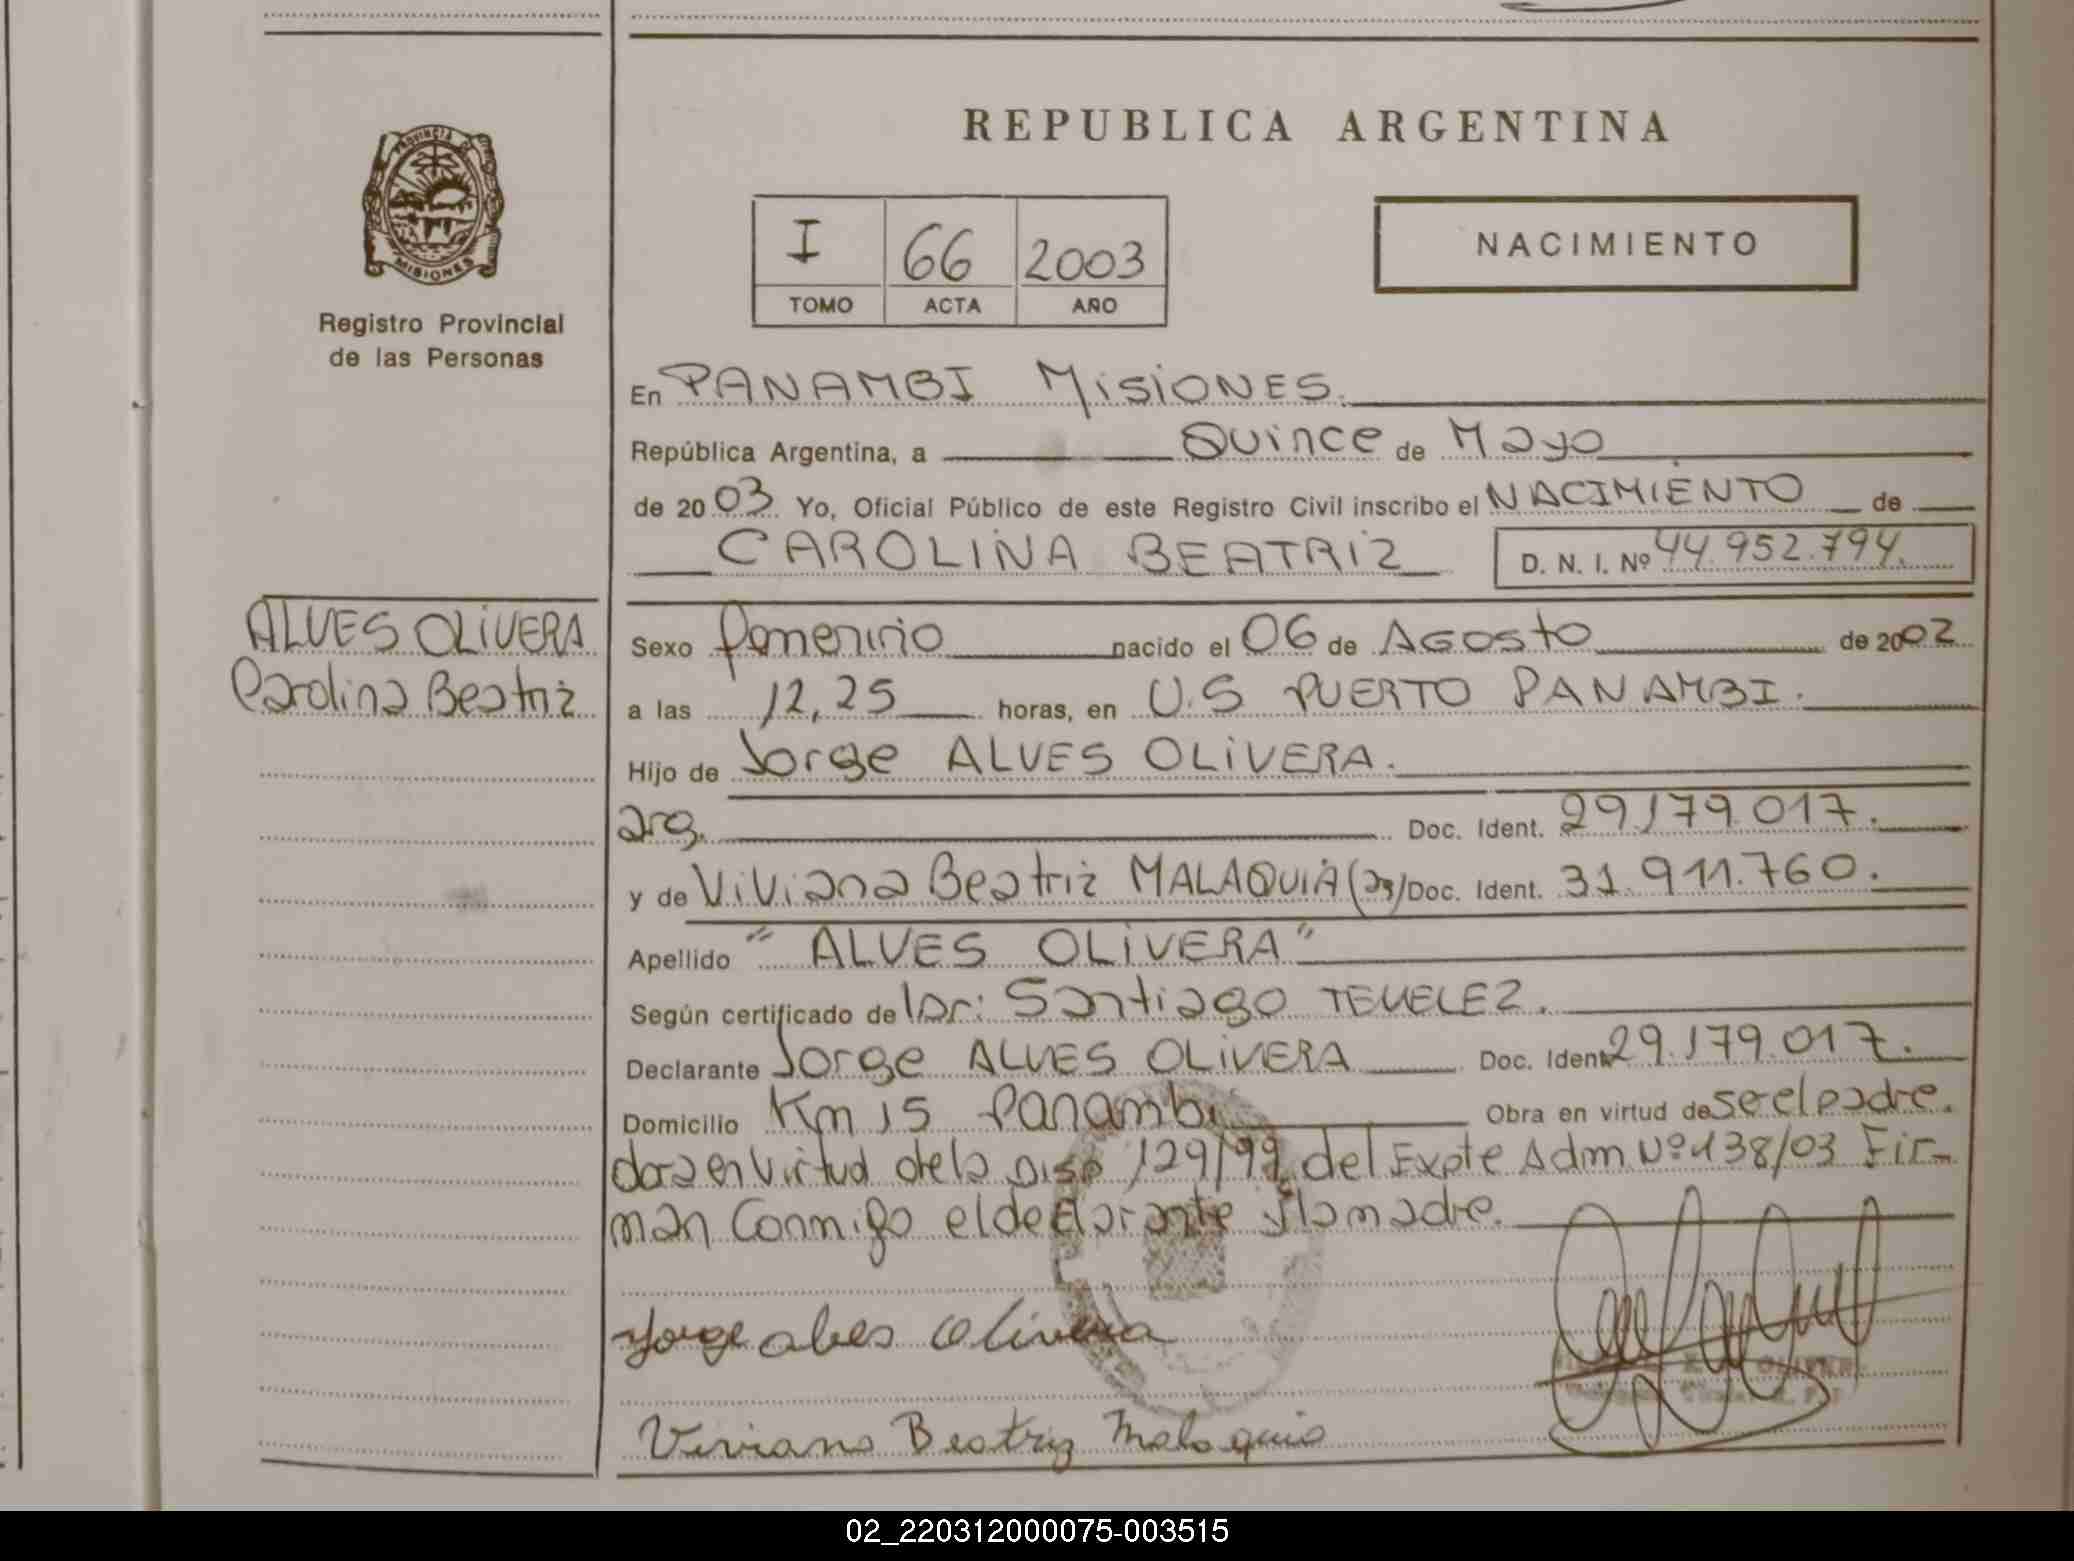 REPUBLICA ARGENTINA
PROVINCIA DE
MISIONES
Registro Provincial
de las Personas
I 66 2003
TOMO ACTA AÑO
NACIMIENTO
En PANAMBI MISIONES.
República Argentina, a Quince de Mayo
de 2003 Yo, Oficial Público de este Registro Civil inscribo el NACIMIENTO de
CAROLINA BEATRIZ D. N. I. Nº 44.952.794.
ALVES OLIVERA
Carolina Beatriz
Sexo femenino nacido el 06 de AGOSTO de 2002
a las 12,25 horas, en U.S PUERTO PANAMBI.
Hijo de Jorge ALVES OLIVERA.
arg. Doc. Ident. 29.179.017.
y de Viviana Beatriz MALAQUIA (arg) Doc. Ident. 31.911.760.
Apellido "ALVES OLIVERA"
Según certificado de Dr: Santiago TEVELEZ.
Declarante Jorge ALVES OLIVERA Doc. Ident. 29.179.017.
Domicilio Km 15 Panambi Obra en virtud de ser el padre.
en virtud de la Disp 129/99 del Expte Adm Nº 138/03 Fir-
man Conmigo el declarante y la madre.
Jorge alves Olivera
OLIVERA
Viviana Beatriz Malaquia
02_220312000075-003515